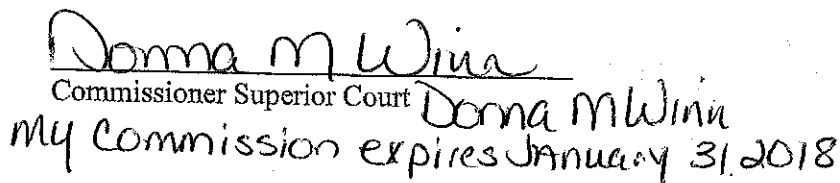 Donna M Winn
Commissioner Superior Court Donna M Winn
My Commission expires January 31, 2018